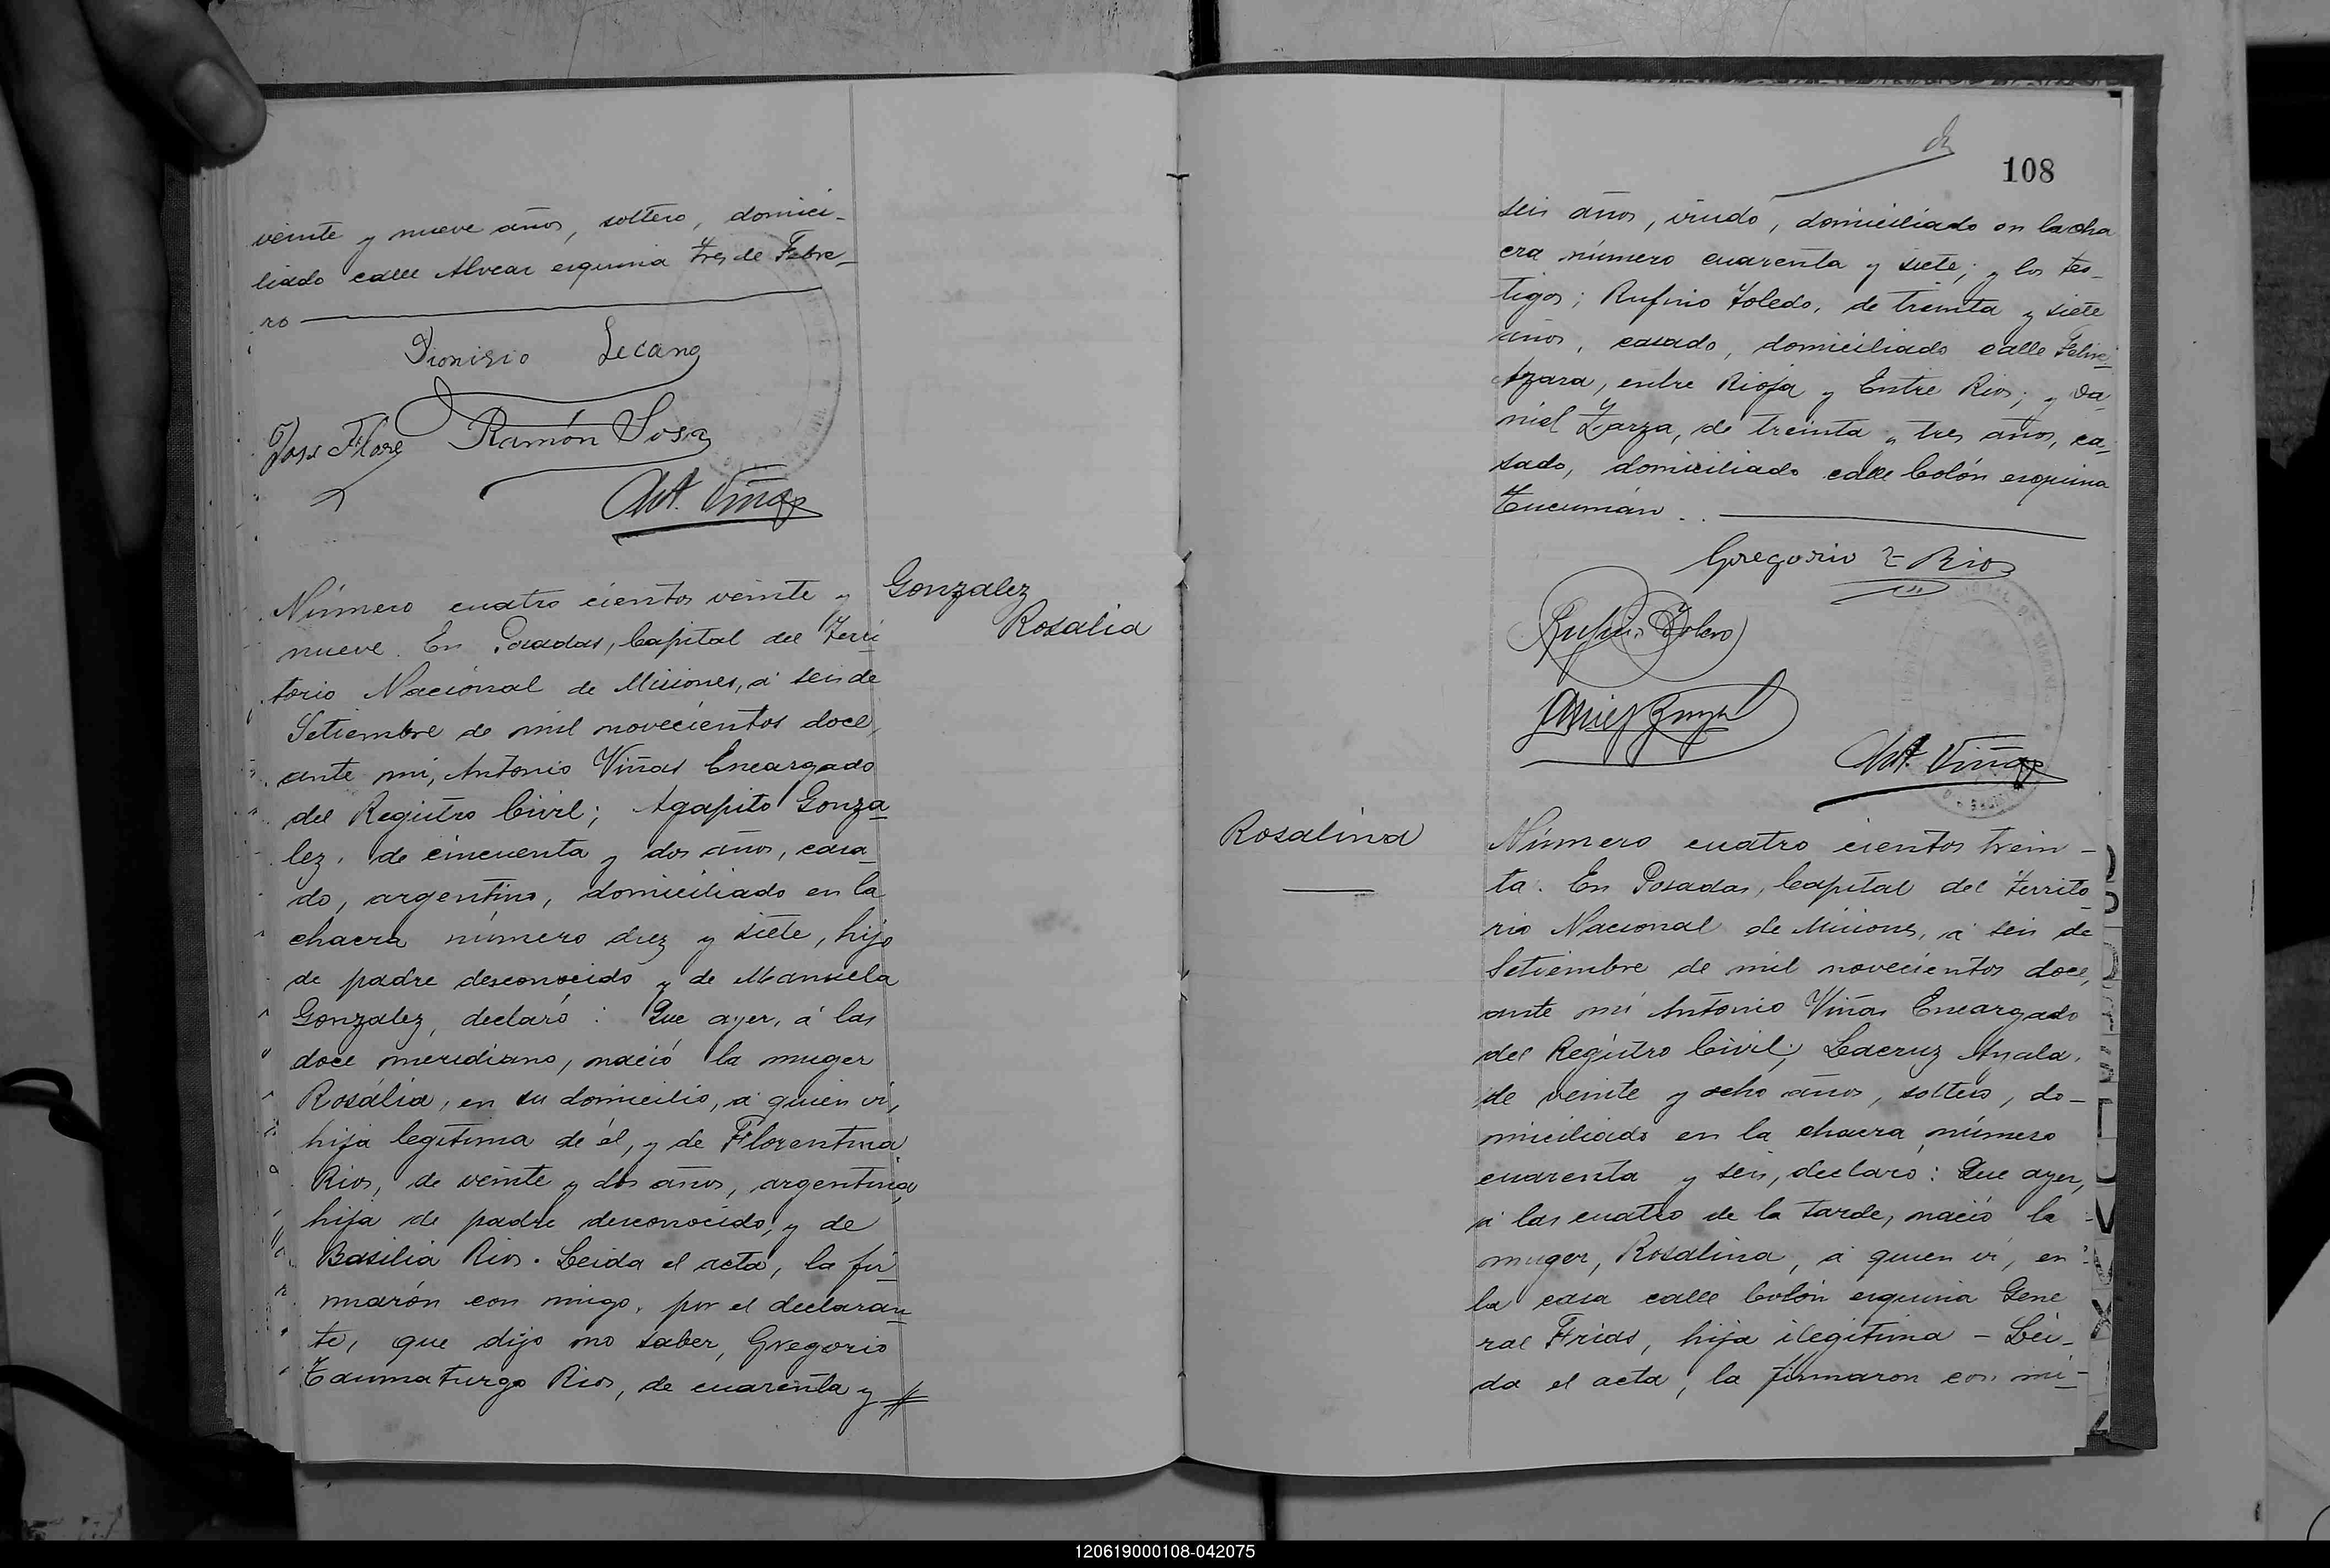 veinte y nueve años, soltero, domici-
liado calle Alvear esquina Tres de Febre-
ro
Dionisio Lecano
José Flore Ramón Sosa
Ant. Viñas
Número cuatro cientos veinte y
nueve. En Posadas, Capital del Terri
torio Nacional de Misiones, á seis de
Setiembre de mil novecientos doce,
ante mi, Antonio Viñas Encargado
del Registro Civil; Agapito Gonza
lez, de cincuenta y dos años, casa
do, argentino, domiciliado en la
chacra número diez y siete, hijo
de padre desconocido y de Manuela
Gonzalez, declaró: Que ayer, á las
doce meridiano, nació la muger
Rosália, en su domicilio, á quien vi,
hija legitima de él, y de Florentina
Rios, de veinte y dos años, argentina,
hija de padre desconocido, y de
Basilia Rios. Leida el acta, la fir
marón con migo, por el declaran
te, que dijo no saber, Gregorio
Taumaturgo Rios, de cuarenta y #
Gonzalez
Rosalia
108
seis años, viudo, domiciliado en la cha
cra número cuarenta y siete; y los tes-
tigos; Rufino Toledo, de treinta y siete
años, casado, domiciliado calle
Azara, entre Rioja y Entre Rios; y Da
niel Zarza, de treinta y tres años, ca
sado, domiciliado calle Colón esquina
Tucumán.
Gregorio T Rios
Rufino Toledo
Ant. Viñas
Rosalina
Número cuatro cientos trein-
ta. En Posadas, Capital del Territo
rio Nacional de Misiones, á seis de
Setiembre de mil novecientos doce,
ante mi Antonio Viñas Encargado
del Registro Civil; Lacruz Ayala,
de veinte y ocho años, soltero, do-
miciliado en la chacra número
cuarenta y seis, declaró: Que ayer,
á las cuatro de la tarde, nació la
muger, Rosalina, á quien vi, en
la casa calle Colón esquina Gene
ral Frias, hija ilegitima - Lei-
da el acta, la firmaron con mi-
120619000108-042075